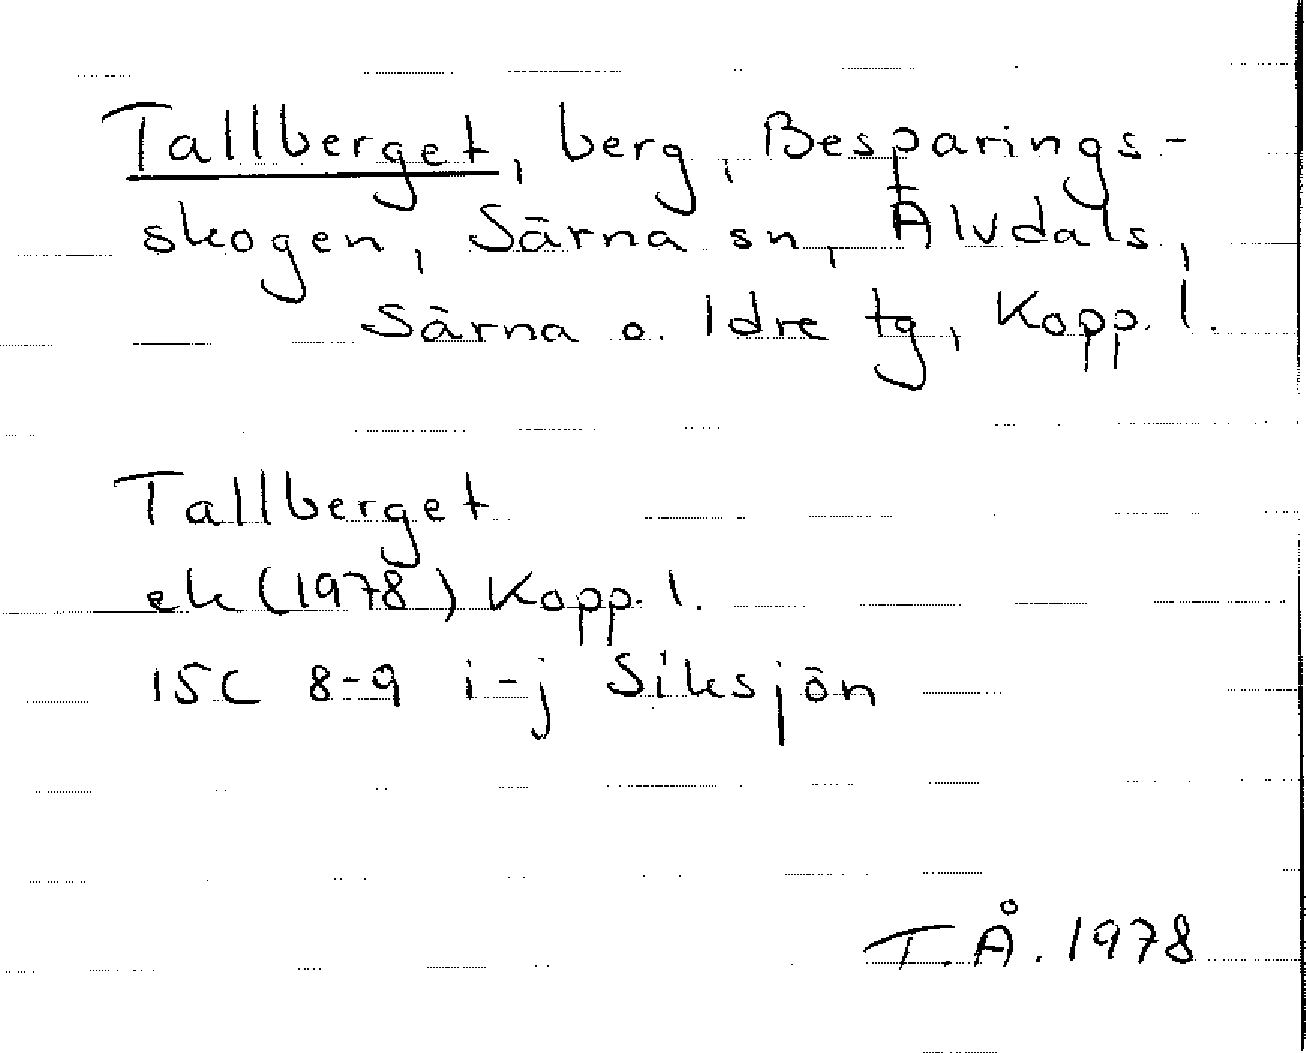 Tallberget, berg, Besparings-
skogen, Särna sn, Älvdals,
Särna o. Idre tg, Kopp. l.
Tallberget
ek (1978) Kopp. l.
15C 8-9 i-j Siksjön
T.Å. 1978